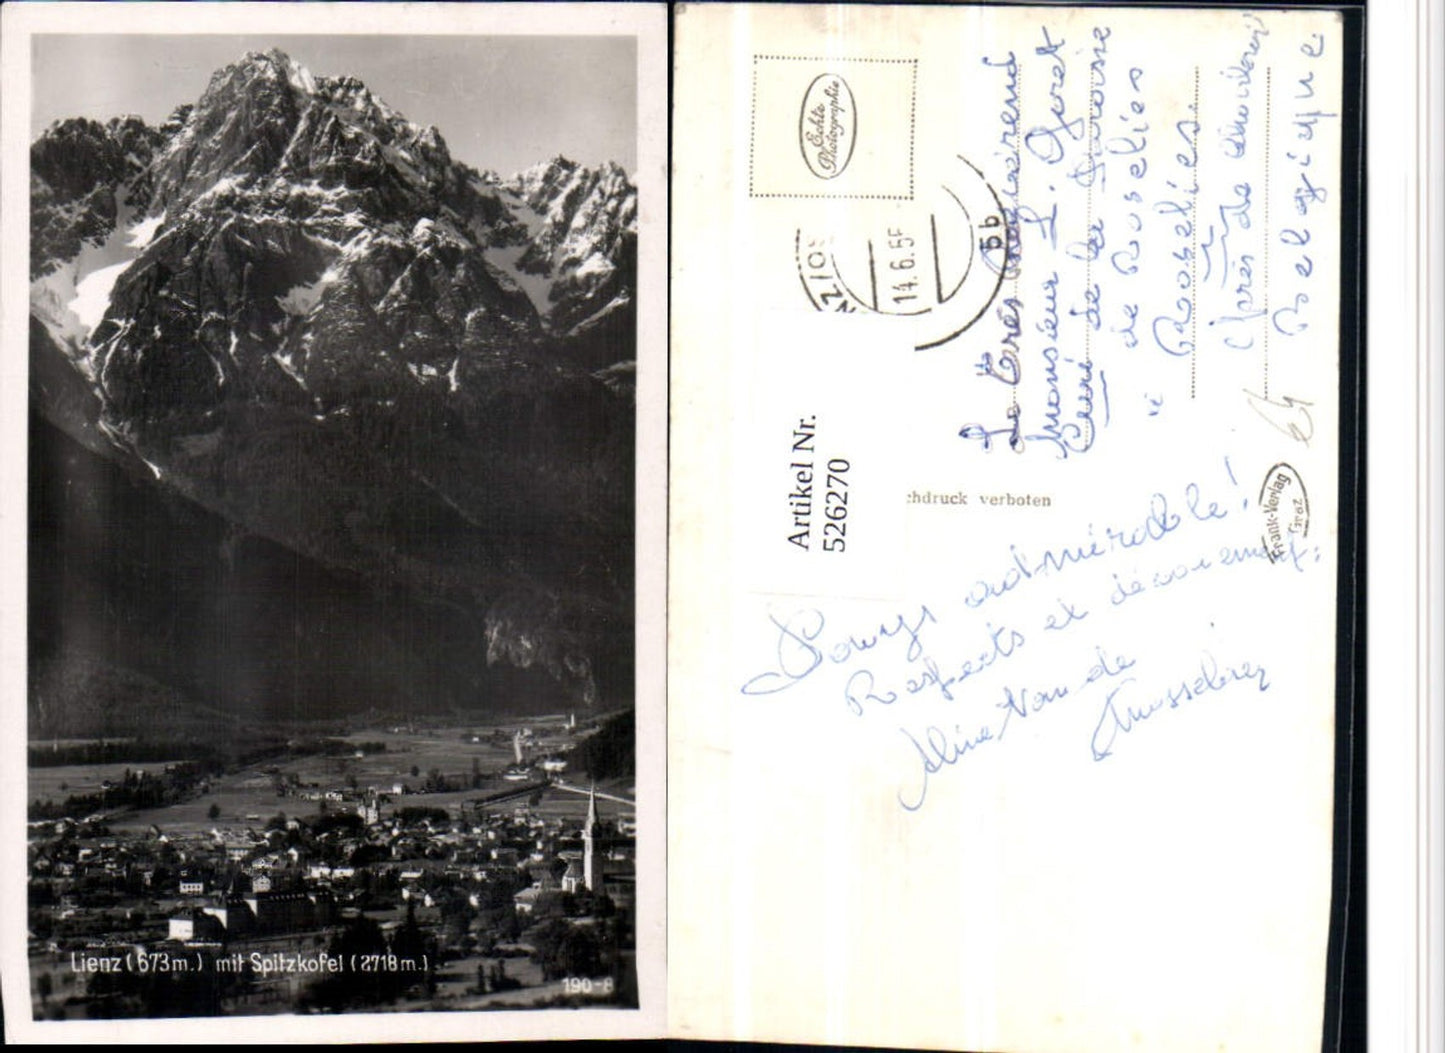 Lienz (673m.) mit Spitzkofel (2718m.)
190-8
Echte
Photographie
14.6.55
5b
Artikel Nr.
526270
chdruck verboten
Frank-Verlag
Graz
Le Très Révérend
Monsieur L. Goret
Curé de la Paroisse
de Roselies
à Roselies
(près de
Belgique
Pays admirable!
Respects et
Aline Van de